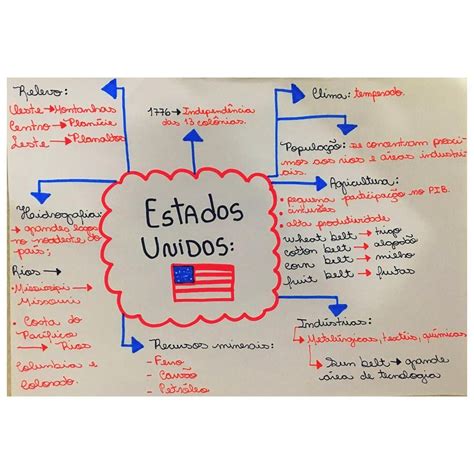 Relevo:
Oeste → Montanhas
Centro → Planície
Leste → Planaltos
1776 → Independência
das 13 colônias.
Clima: temperado.
População: se concentram próxi
mos aos rios e áreas industri
ais.
Agricultura:
• pequena participação no PIB.
• alta produtividade
wheat belt → trigo
cotton belt → algodão
corn belt → milho
fruit belt → frutas
ESTADOS
UNIDOS:
Hidrografia:
→ grandes lagos
no nordeste do
país;
Rios →
• Mississipi →
Missouri
• Costa do
Pacífico
→ Rios
Columbia e
Colorado.
Recursos minerais:
- Ferro
- Carvão
- Petróleo
Indústrias:
→ Metalúrgicas, têxteis, químicas
→ Sun belt → grande
área de tecnologia